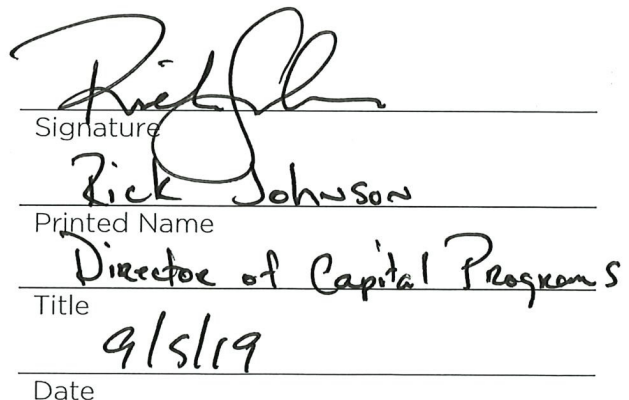 Rick Johnson
Signature
Rick Johnson
Printed Name
Director of Capital Programs
Title
9/5/19
Date